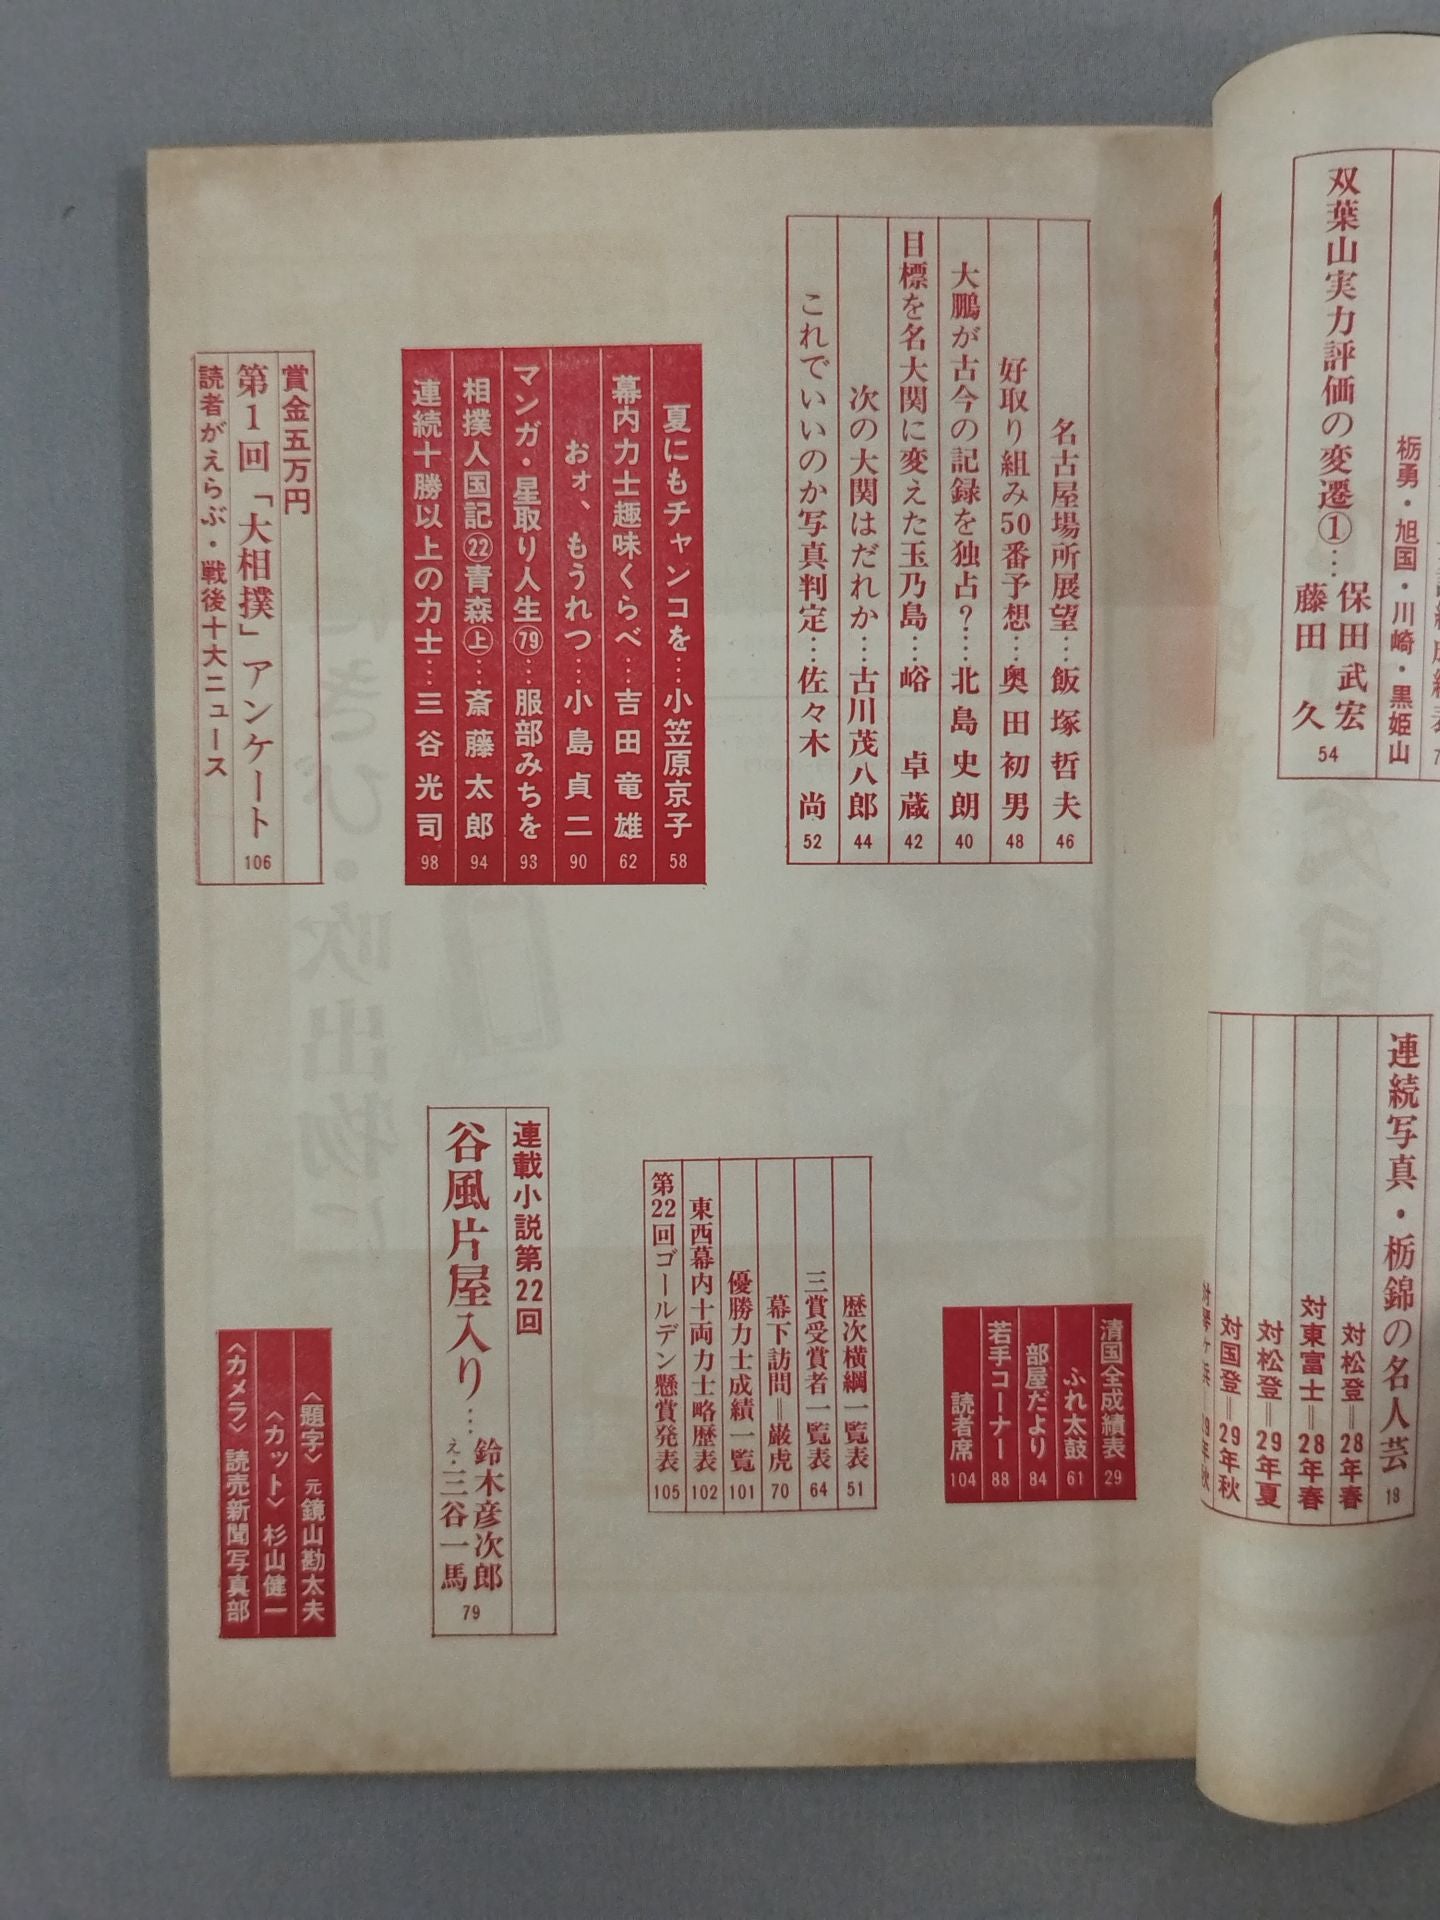 双葉山実力評価の変遷①…保田武宏
藤田 久
54
栃勇・旭国・川崎・黒姫山
連続写真・栃錦の名人芸
19
対松登＝28年春
対東富士＝28年春
対松登＝29年夏
対国登＝29年秋
名古屋場所展望…飯塚哲夫 46
好取り組み50番予想…奥田初男 48
大鵬が古今の記録を独占？…北島史朗 40
目標を名大関に変えた玉乃島…峪 卓蔵 42
次の大関はだれか…古川茂八郎 44
これでいいのか写真判定…佐々木 尚 52
夏にもチャンコを…小笠原京子 58
幕内力士趣味くらべ…吉田竜雄 62
おォ、もうれつ…小島貞二 90
マンガ・星取り人生㊆…服部みちを 93
相撲人国記㉒青森㊤…斎藤太郎 94
連続十勝以上の力士…三谷光司 98
賞金五万円
第1回「大相撲」アンケート 106
読者がえらぶ・戦後十大ニュース
清国全成績表 29
ふれ太鼓 61
部屋だより 84
若手コーナー 88
読者席 104
歴次横綱一覧表 51
三賞受賞者一覧表 64
幕下訪問＝巌虎 70
優勝力士成績一覧 101
東西幕内十両力士略歴表 102
第22回ゴールデン懸賞発表 105
連載小説第22回
谷風片屋入り…鈴木彦次郎
え・三谷一馬
79
〈題字〉元鏡山勘太夫
〈カット〉杉山健一
〈カメラ〉読売新聞写真部